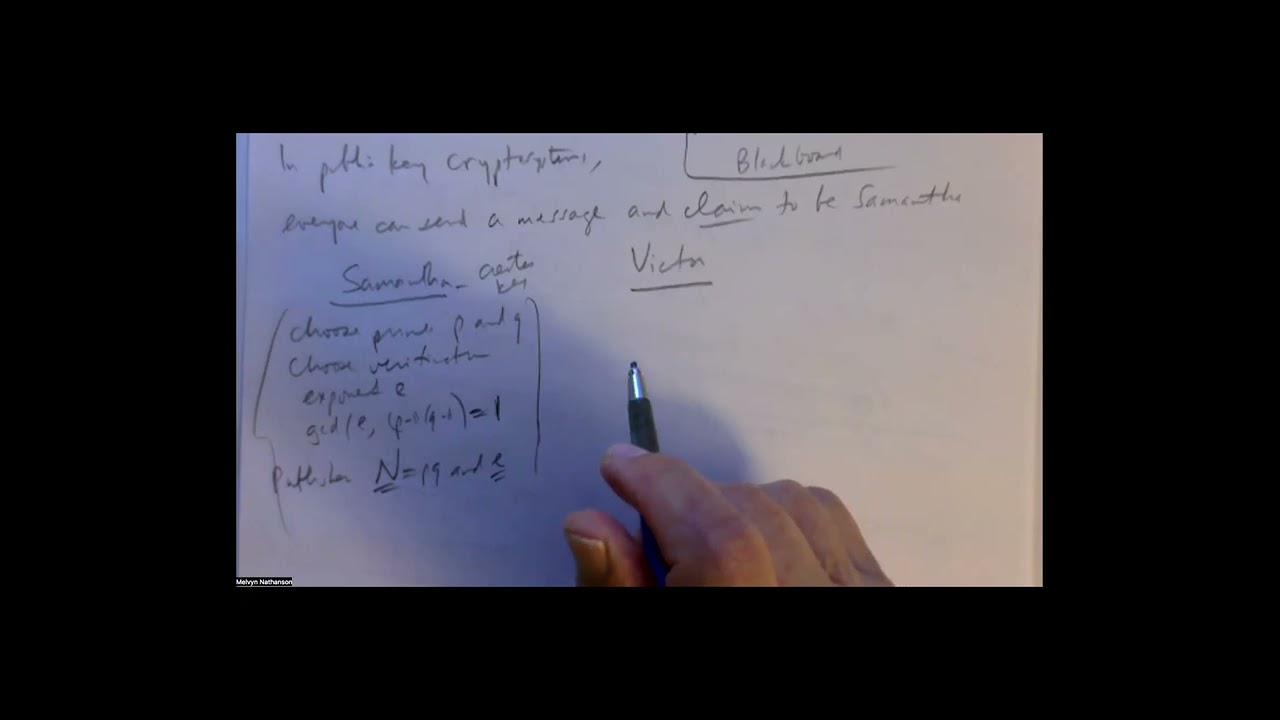 In public key cryptosystems,
Blackboard
everyone can send a message and claim to be Samantha
Samantha - creates
key
Victor
choose primes p and q
choose verification
exponent e
gcd(e, (p-1)(q-1)) = 1
Publishes N = pq and e
Melvyn Nathanson